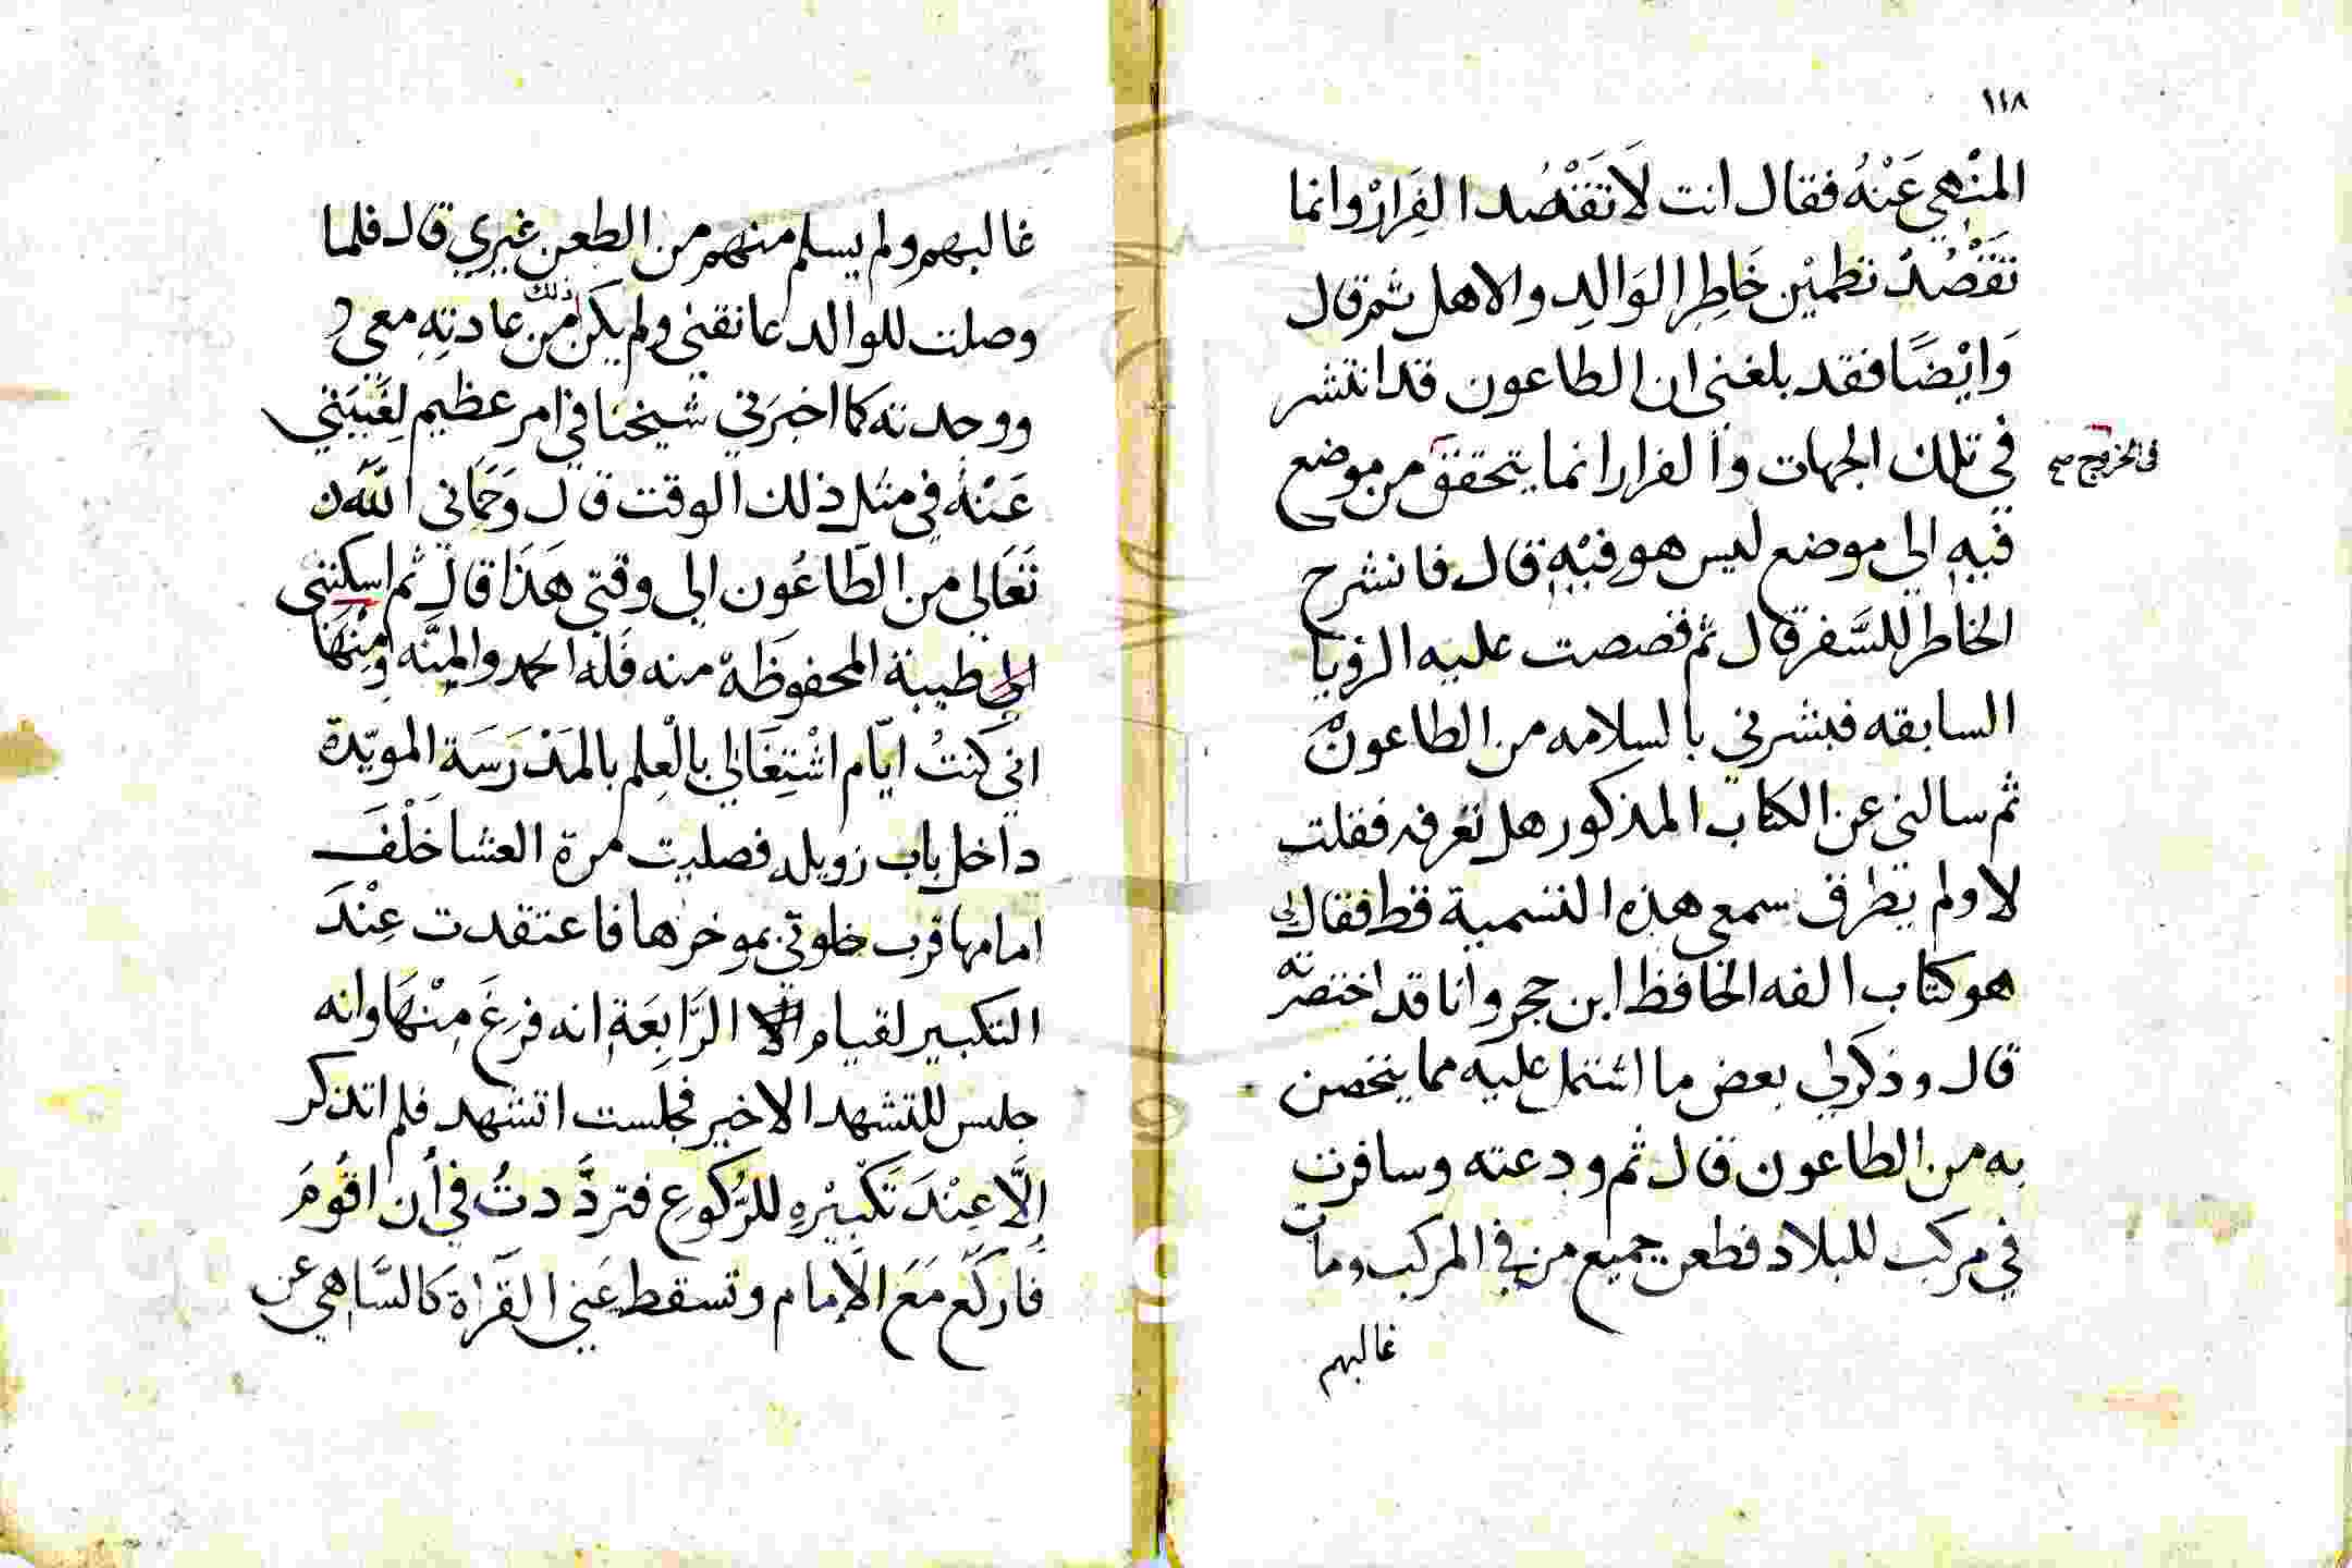 ١١٨
المنْهي عَنْهُ فقال انت لَا تَقْصُد الفِرارْ وانما
تَقْصُدُ تطمئين خَاطِر الوَالِدِ والاهل ثم قال
وَايْضًا فقد بلغني ان الطاعون قد انتشر
في تلك الجهات والفرار انما يتحقق من موضع
في الخروج صح
فيهِ الي موضع ليس هو فيْهِ قال فانشرح
الخاطر للسَّفر قال ثم قصصت عليه الرؤيا
السابقه فبشرني بالسلامه من الطاعون
ثم سالني عن الكتاب المذكور هل تعرفه فقلت
لا ولم يطرق سمعي هذه التسمية قط فقال لي
هو كتاب الفه الحافظ ابن حجر وانا قد اختصرته
قال وذكر لي بعض ما اشتمل عليه مما يتحصن
به من الطاعون قال ثم ودعته وسافرت
في مركب للبلاد فطعن جميع من في المركب ومات
غالبهم
غالبهم ولم يسلم منهم من الطعن غيري قال فلما
وصلت للوالد عانقني ولم يكن ذلك من عادتِهِ معي
ووجدته كما اخبَرني شيخنا في امر عظيم لِغَيبَتي
عَنْهُ في مثل ذلك الوقت قال وَحَمَاني الله
تَعَالي من الطَاعُون الي وقتي هَذَا قال ثم اسكنني
الي طيبة المحفوظَة منه فَلَه الحمد والمِنَّه ومِنْهَا
اني كنتُ ايّام اشْتِغَالي بالْعِلم بالمَدْرَسَة المويّدة
داخل باب زويله فصليت مرة العشا خَلْفَ
امامها قرب خلوتي بموخرها فاعتقدت عِنْدَ
التكبير لقيام الرَّابِعَةِ انه فرغَ مِنْهَا وانه
جلس للتشهد الاخير فجلست اتشهد فلم اتذكر
إلَّا عِنْدَ تَكْبيْرهِ للرُّكوعِ فتردَّدتُ في أن اقُومَ
فَاركَع مَعَ الاِمام وتسقط عَني القَراة كالسَّاهي عن